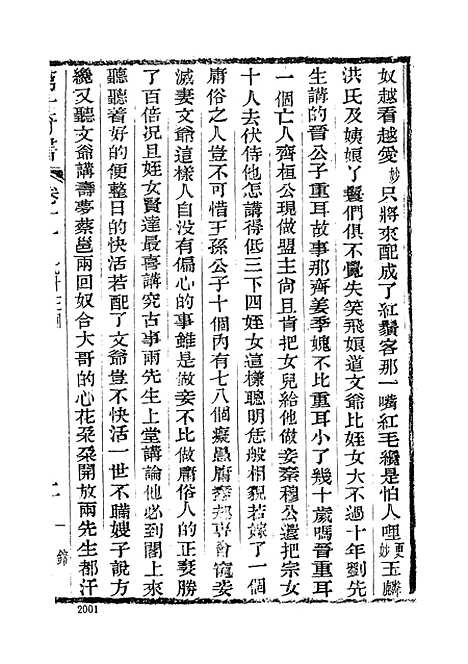 奴越看越愛妙只將來配成了紅鬚客那一嘴紅毛纔是怕人哩更妙玉麟
洪氏及姨娘丫鬟們俱不覺失笑飛娘道文爺比姪女大不過十年劉先
生講的晉公子重耳故事那齊姜季媿不比重耳小了幾十歲嗎晉重耳
一個亡人齊桓公現做盟主尙且肯把女兒給他做妾秦穆公還把宗女
十人去伏侍他怎講得低三下四姪女這樣聰明恁般相貌若嫁了一個
庸俗之人豈不可惜王孫公子十個內有七八個癡愚庸蠢都專會寵妾
滅妻文爺這樣人自沒有偏心的事雖是做妾不比做庸俗人的正妻勝
了百倍況且姪女賢達最喜講究古事兩先生上堂講論他必到閣上來
聽聽着好的便整日的快活若配了文爺豈不快活一世不瞞嫂子說方
纔又聽文爺講壽夢蔡邕兩回奴合大哥的心花朶朶開放兩先生都汗
第一奇書 卷十
2001